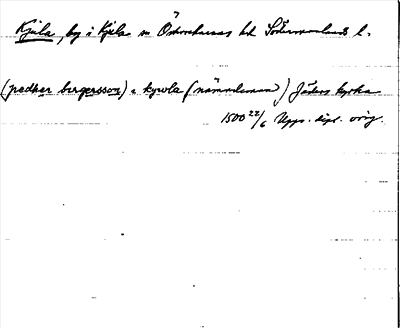 Kjula, by i Kjula sn Österrekarnes hd Södermanlands l.
(pedher bergersson) i kywla (nämndeman) Jäders kyrka
1500 22/6 Upps. dipl. orig.